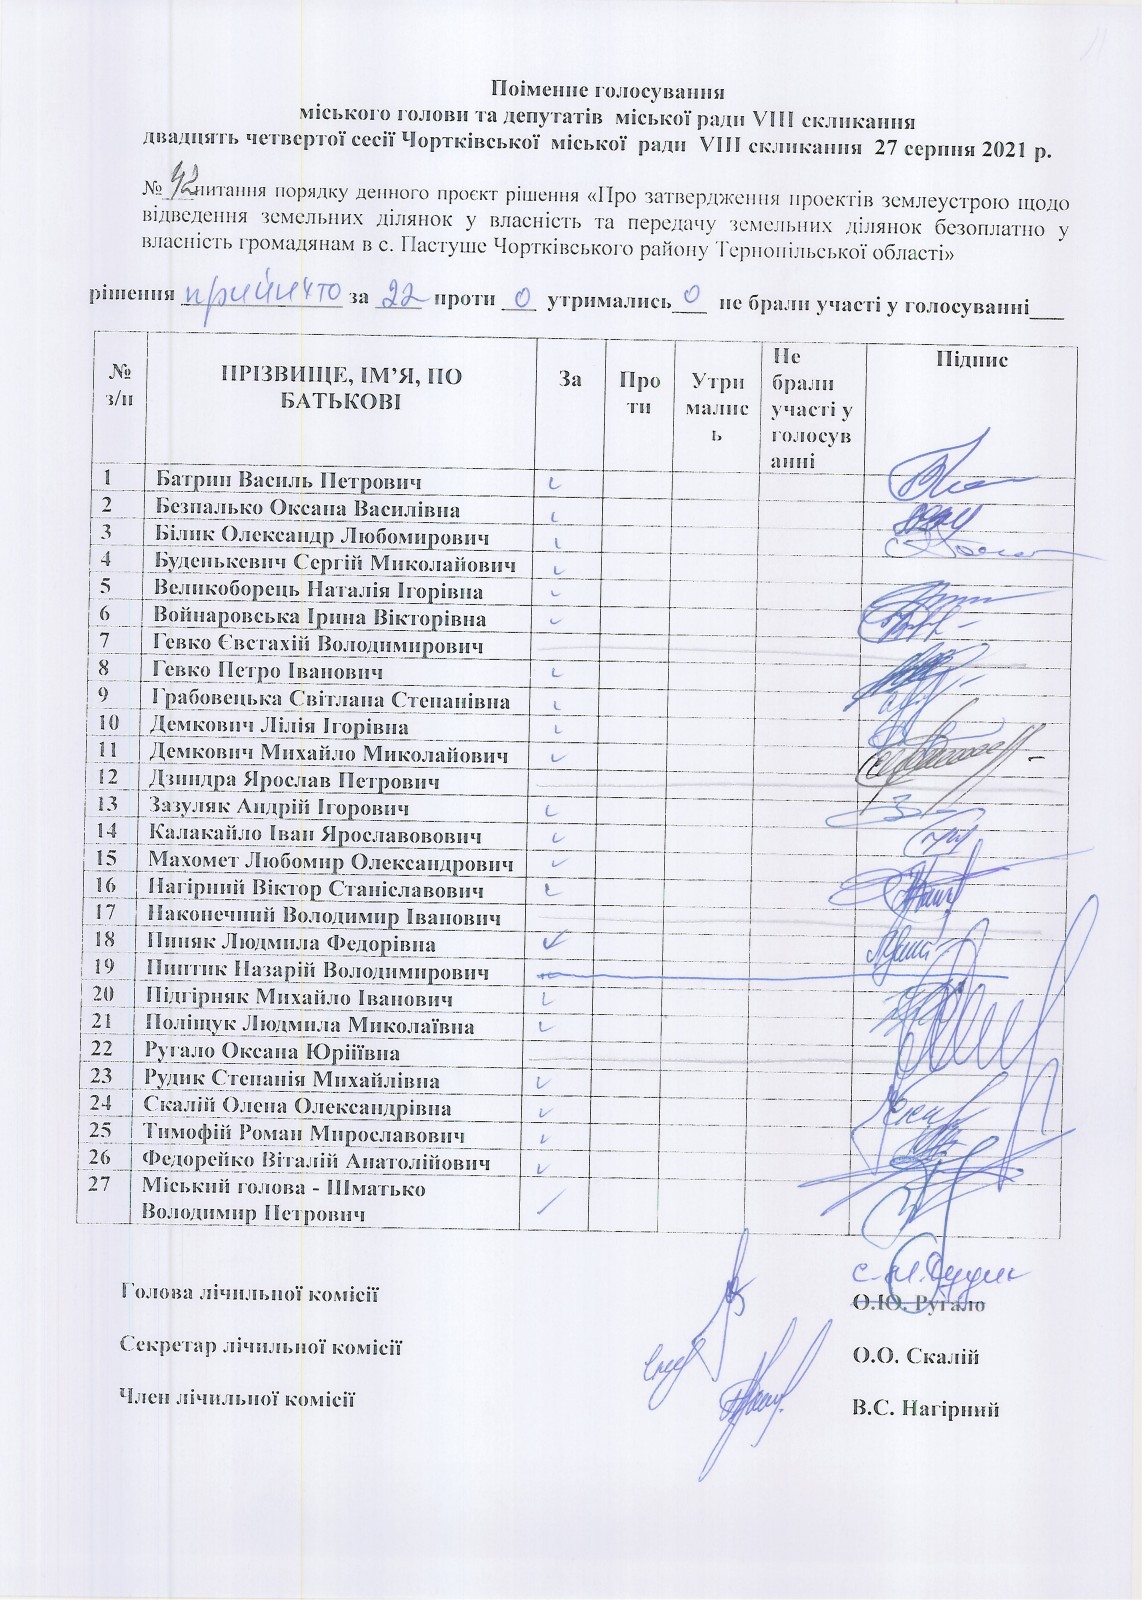 Поіменне голосування
міського голови та депутатів міської ради VIII скликання
двадцять четвертої сесії Чортківської міської ради VIII скликання 27 серпня 2021 р.
№ 42 питання порядку денного проєкт рішення «Про затвердження проектів землеустрою щодо
відведення земельних ділянок у власність та передачу земельних ділянок безоплатно у
власність громадянам в с. Пастуше Чортківського району Тернопільської області»
рішення прийнято за 22 проти 0 утримались 0 не брали участі у голосуванні___
№ з/п ПРІЗВИЩЕ, ІМ’Я, ПО БАТЬКОВІ За Про ти Утри малис ь Не брали участі у голосув анні Підпис
1 Батрин Василь Петрович
2 Безпалько Оксана Василівна
3 Білик Олександр Любомирович
4 Буденькевич Сергій Миколайович
5 Великоборець Наталія Ігорівна
6 Войнаровська Ірина Вікторівна
7 Гевко Євстахій Володимирович
8 Гевко Петро Іванович
9 Грабовецька Світлана Степанівна
10 Демкович Лілія Ігорівна
11 Демкович Михайло Миколайович
12 Дзиндра Ярослав Петрович
13 Зазуляк Андрій Ігорович
14 Калакайло Іван Ярославовович
15 Махомет Любомир Олександрович
16 Нагірний Віктор Станіславович
17 Наконечний Володимир Іванович
18 Пиняк Людмила Федорівна
19 Пиптик Назарій Володимирович
20 Підгірняк Михайло Іванович
21 Поліщук Людмила Миколаївна
22 Ругало Оксана Юріїївна
23 Рудик Степанія Михайлівна
24 Скалій Олена Олександрівна
25 Тимофій Роман Мирославович
26 Федорейко Віталій Анатолійович
27 Міський голова - Шматько
Володимир Петрович
Голова лічильної комісії
О.Ю. Ругало
Секретар лічильної комісії
О.О. Скалій
Член лічильної комісії
В.С. Нагірний